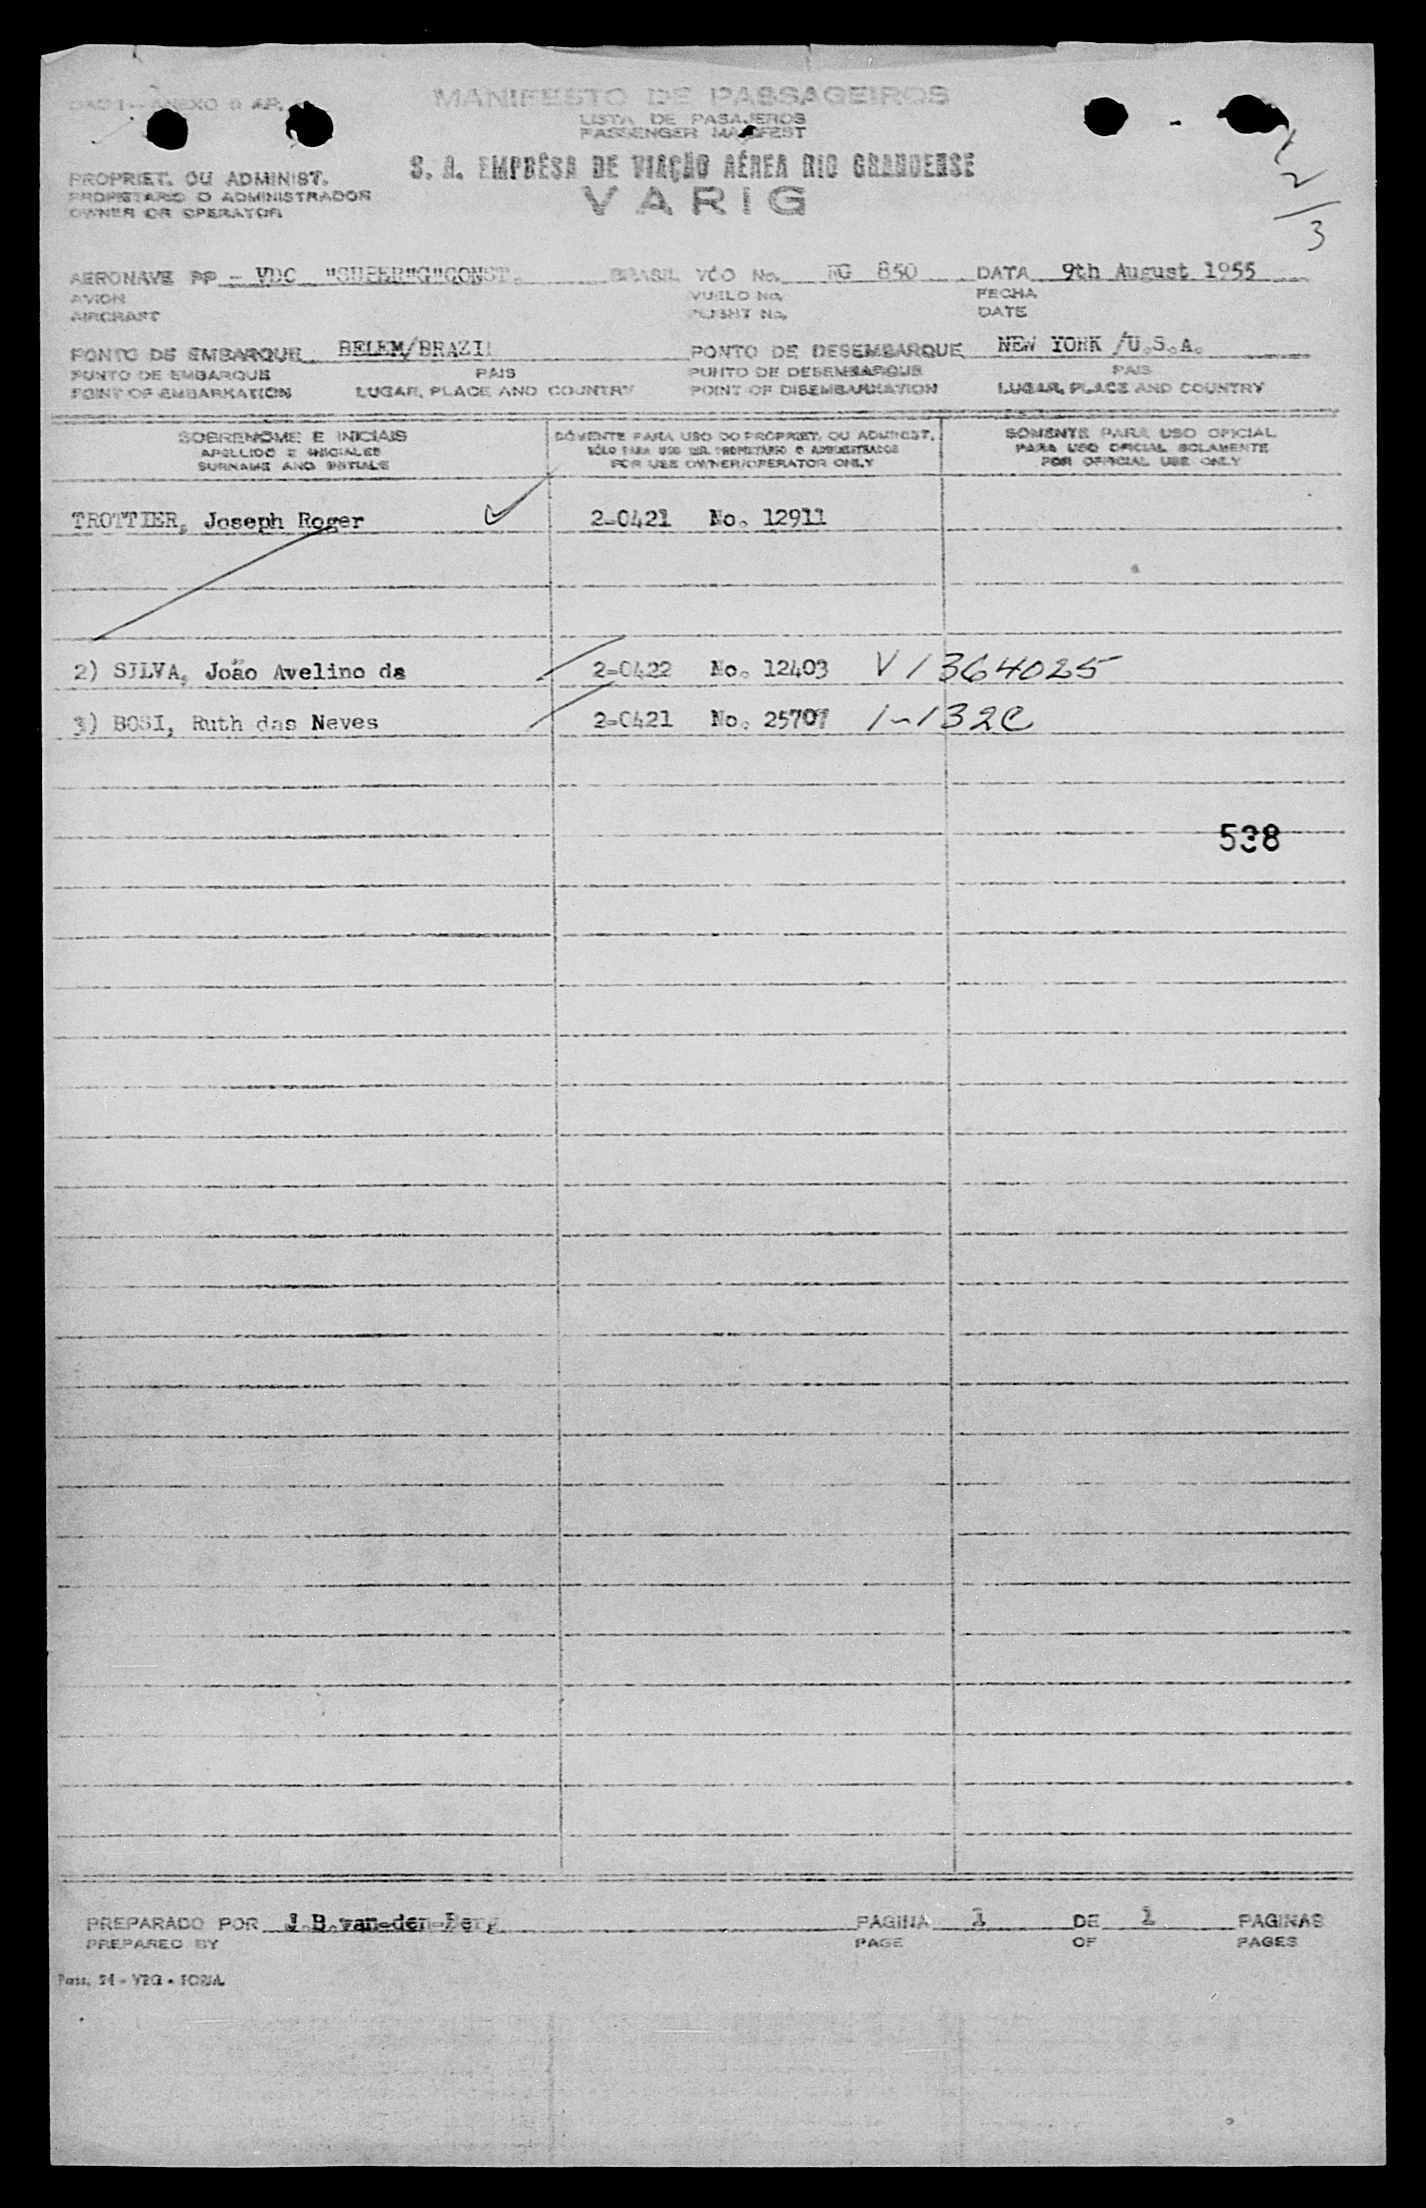 MANIFESTO DE PASSAGEIROS
LISTA DE PASAJEROS
PASSENGER MANIFEST
S. A. EMPRÊSA DE VIAÇÃO AÉREA RIO GRANDENSE
VARIG
1
2
3
PROPRIET. OU ADMINIST.
PROPIETARIO O ADMINISTRADOR
OWNER OR OPERATOR
AERONAVE PP - VDC "SUPER"G"CONST. BRASIL VÔO No. RG 850 DATA 9th August 1955
AVION VUELO No. FECHA
AIRCRAFT FLIGHT No. DATE
PONTO DE EMBARQUE BELEM/BRAZIL PONTO DE DESEMBARQUE NEW YORK /U.S.A.
PUNTO DE EMBARQUE PAIS PUNTO DE DESEMBARQUE PAIS
POINT OF EMBARKATION LUGAR, PLACE AND COUNTRY POINT OF DISEMBARKATION LUGAR, PLACE AND COUNTRY
SOBRENOME E INICIAIS SÓMENTE PARA USO DO PROPRIET. OU ADMINIST. SÓMENTE PARA USO OFICIAL
APELLIDO E INICIALES SÓLO PARA USO DEL PROPIETARIO O ADMINISTRADOR PARA USO OFICIAL SOLAMENTE
SURNAME AND INITIALS FOR USE OWNER/OPERATOR ONLY FOR OFFICIAL USE ONLY
TROTTIER, Joseph Roger 2-0421 No. 12911
2) SILVA, João Avelino da 2-0422 No. 12403 V 1364025
3) BOSI, Ruth das Neves 2-0421 No. 25707 1-132C
538
PREPARADO POR J.B.van-den-Berg PAGINA 1 DE 1 PAGINAS
PREPARED BY PAGE OF PAGES